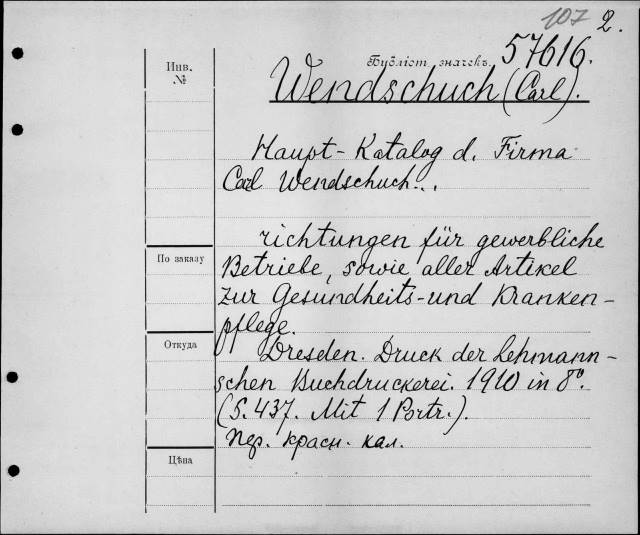 107 2.
Инв. №
Бубліот значекъ. 57616.
Wendschuch (Carl).
Haupt-Katalog d. Firma
Carl Wendschuch...
richtungen für gewerbliche
По заказу
Betriebe, sowie aller Artikel
zur Gesundheits- und Kranken-
pflege.
Откуда
Dresden. Druck der Lehmann-
schen Buchdruckerei. 1910 in 8º.
(S. 437. Mit 1 Portr.).
пер. красн. кал.
Цѣна